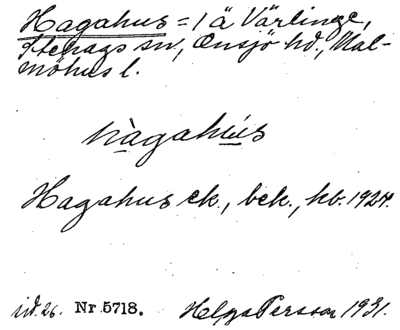 Hagahus = 1 ä Värlinge,
Stehags sn, Onsjö hd., Mal-
möhus l.
hàgahús
Hagahus ek., bek., hb. 1924.
id. 26. Nr 5718. Helga Persson 1931.